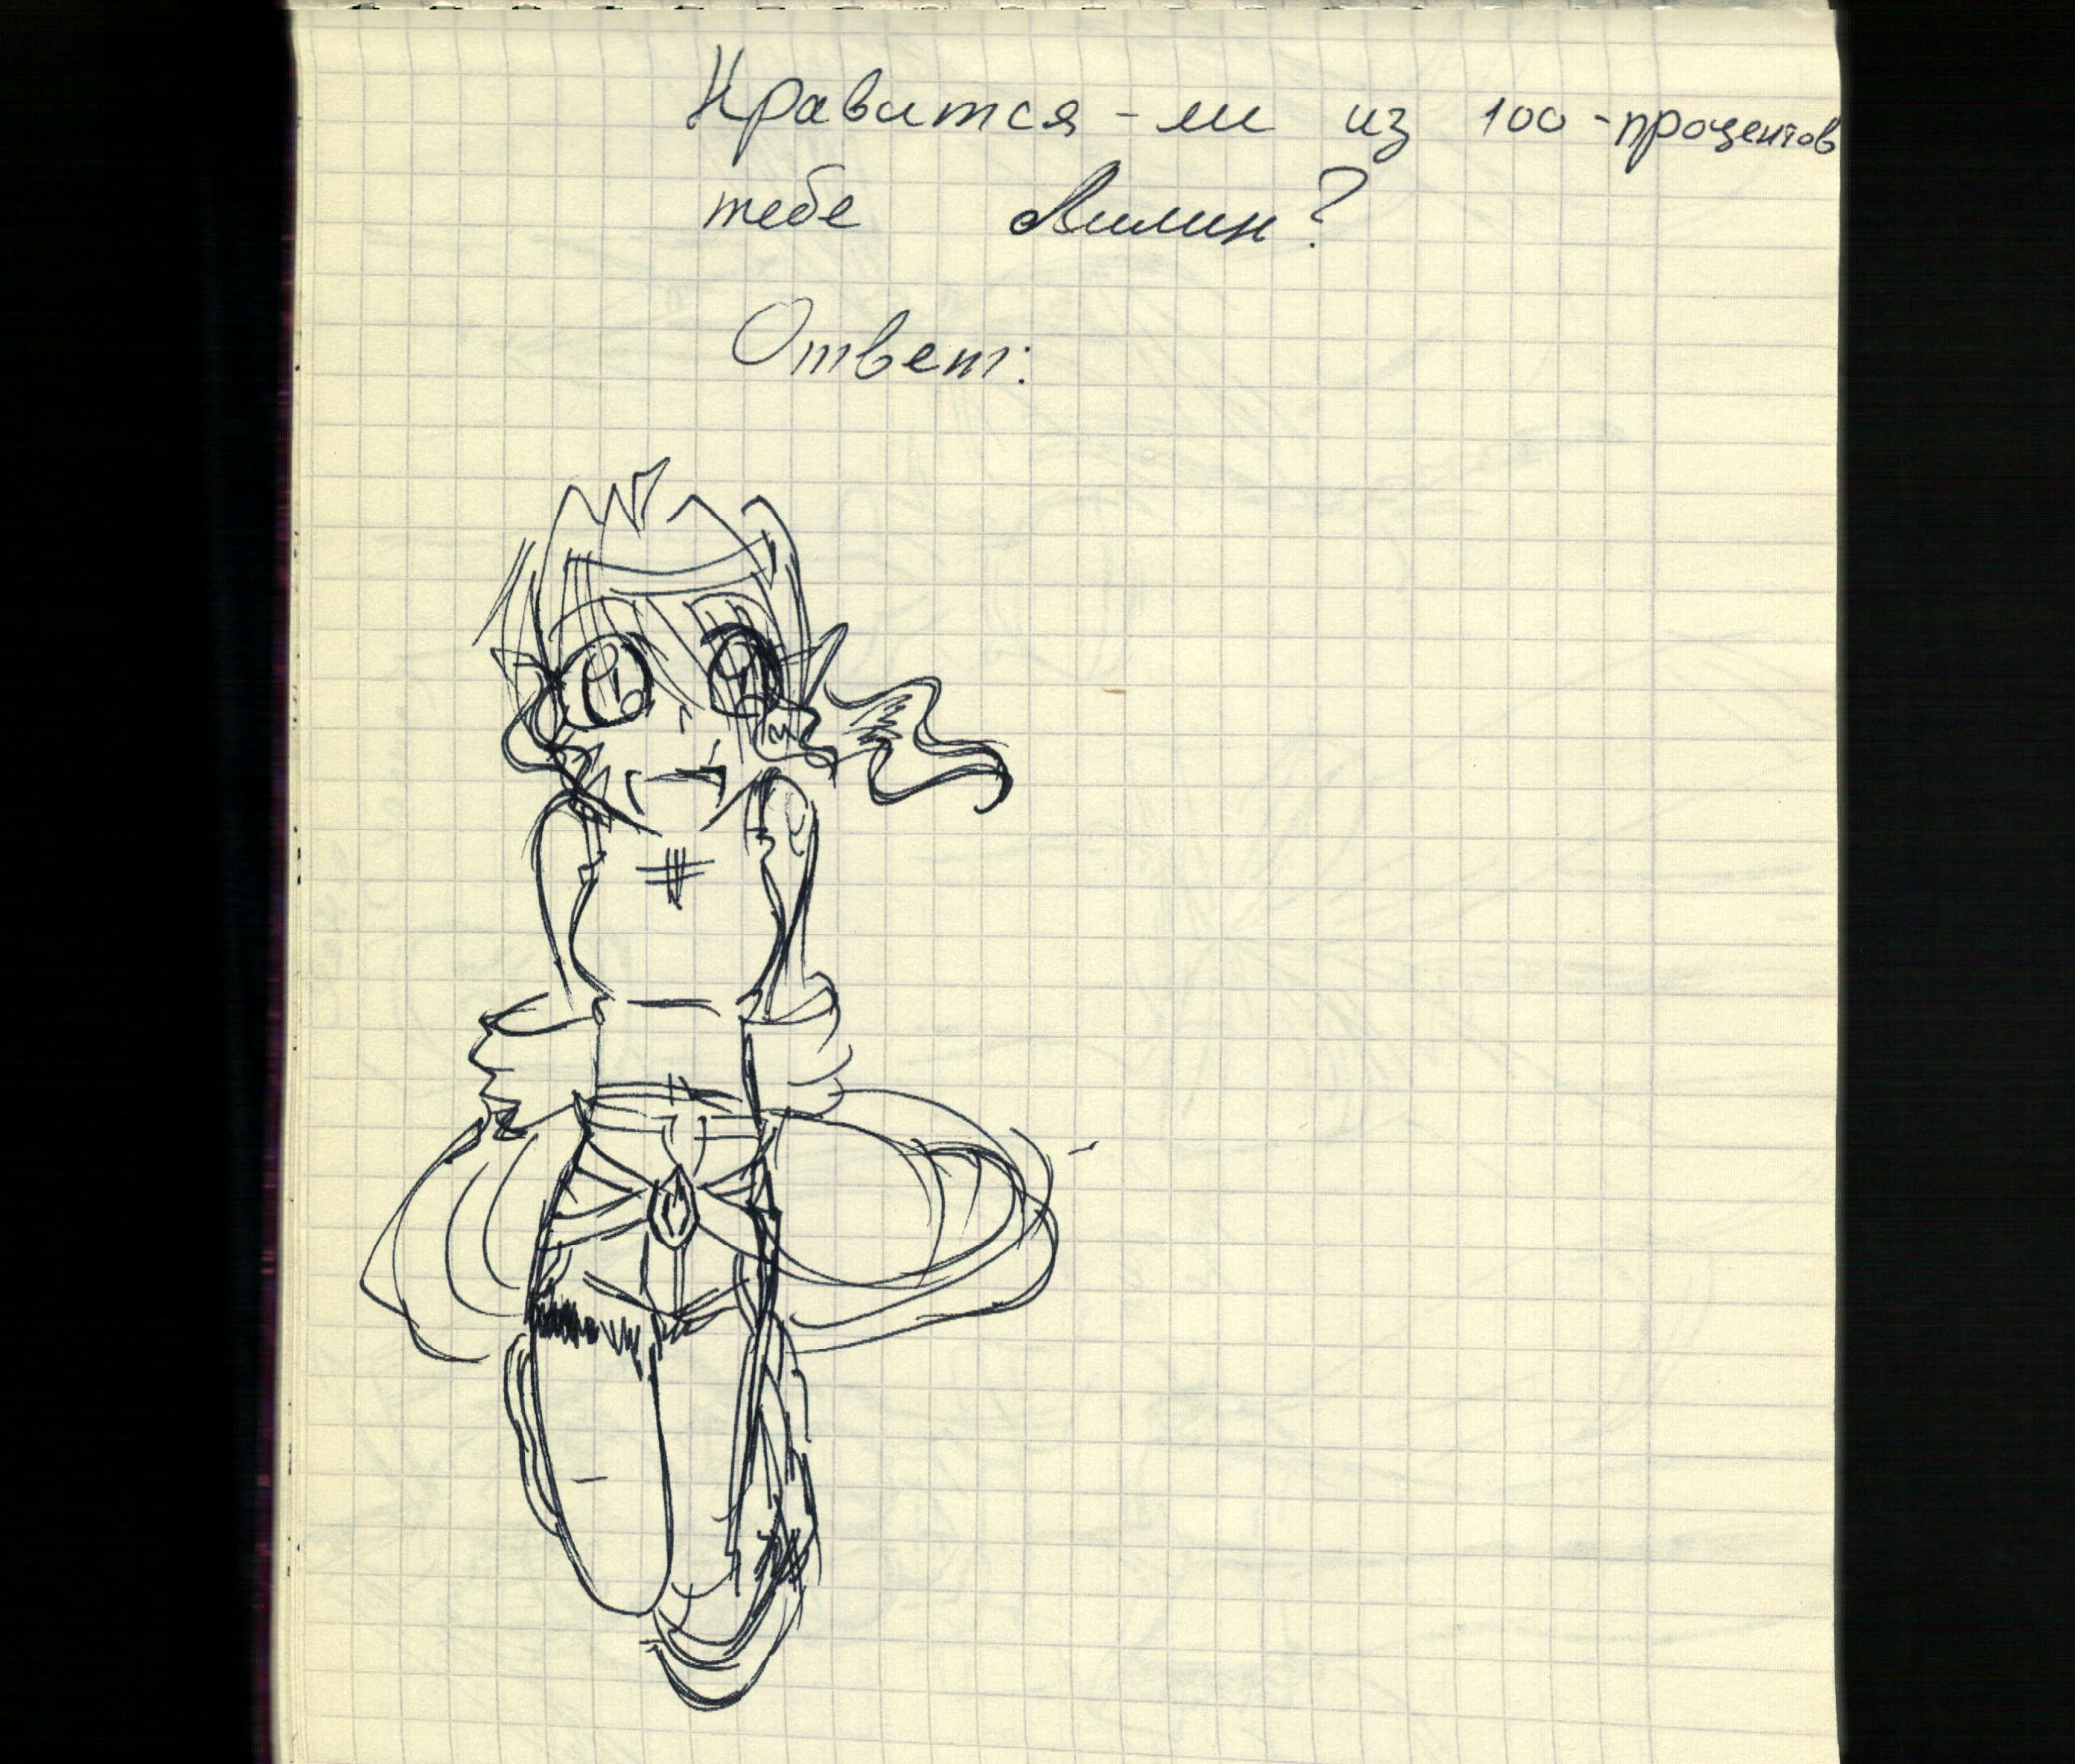 Нравится-ли из 100-процентов
тебе Лилин?
Ответ: